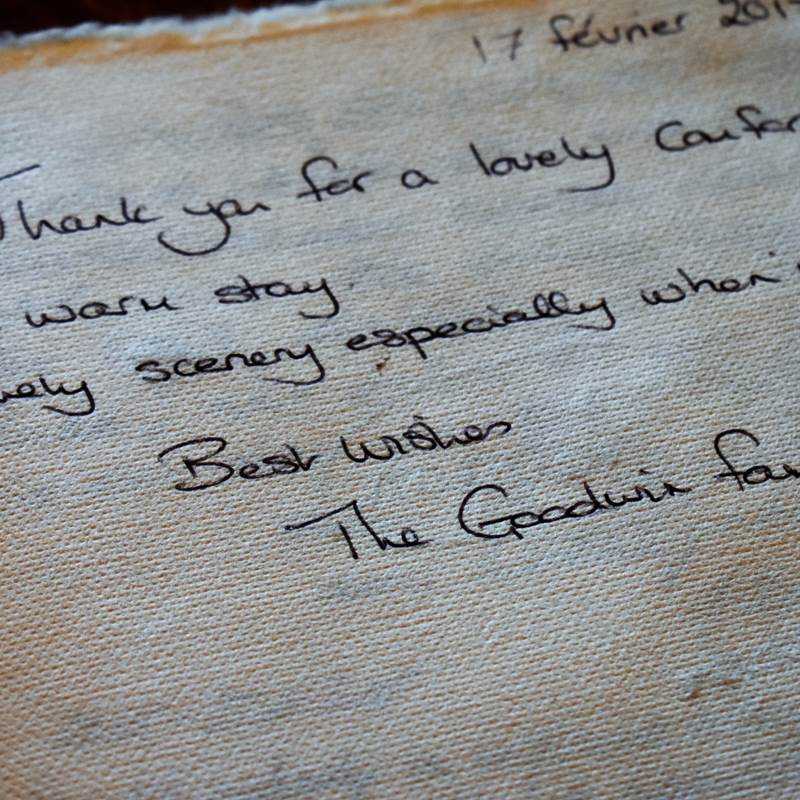 17 février 201
Thank you for a lovely Comfor
warm stay.
vely scenery especially when
Best Wishes
The Goodwin fam